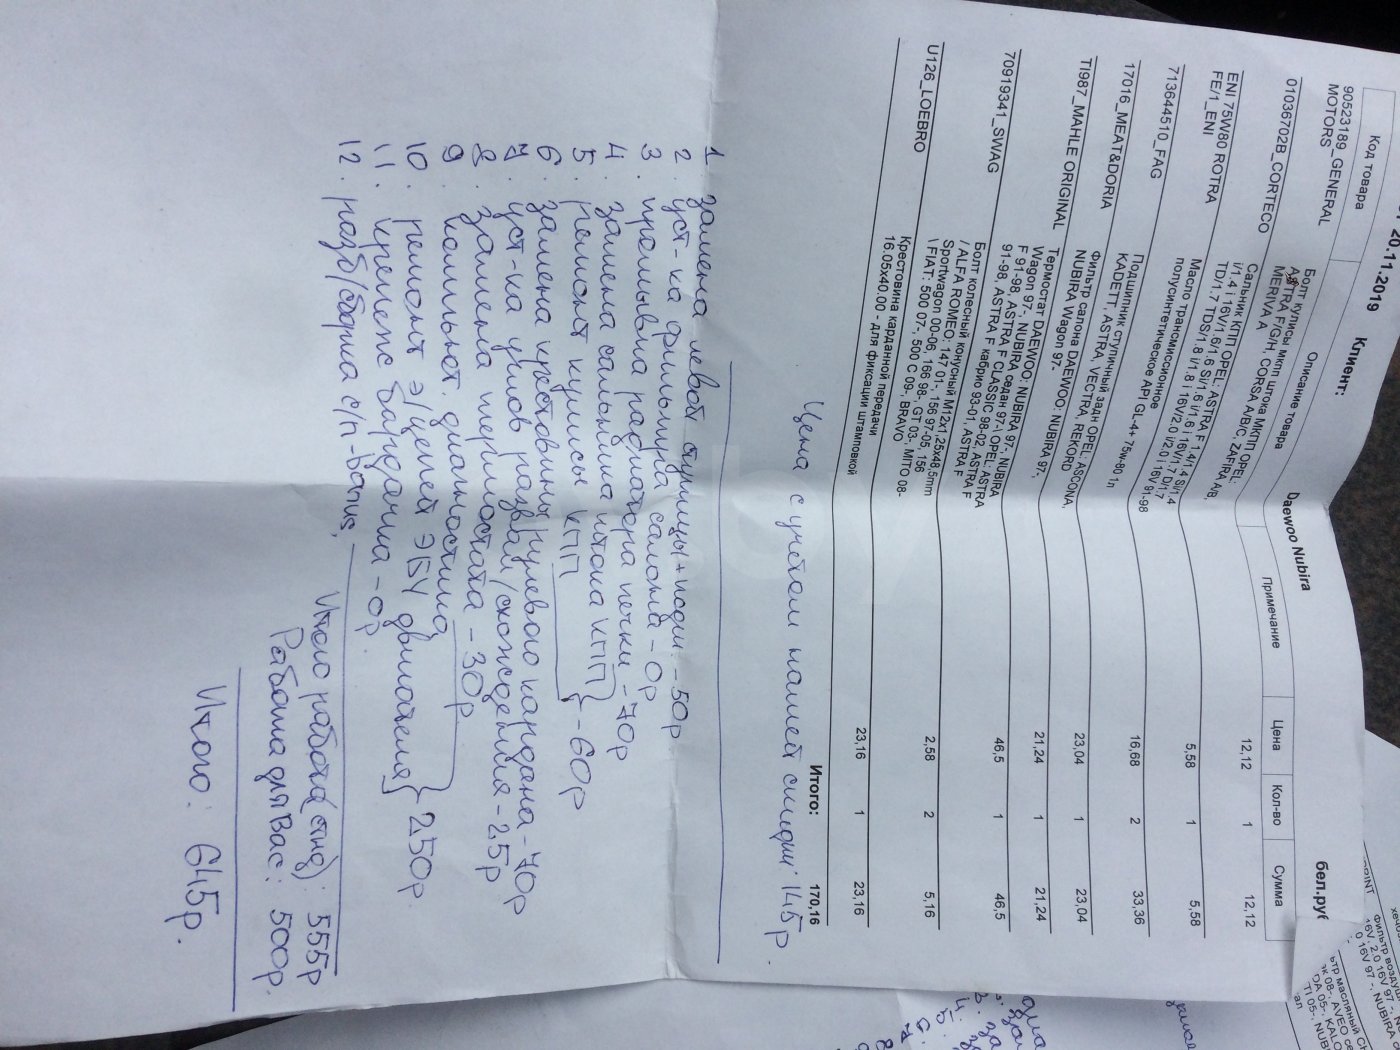 20.11.2019 Клиент: Daewoo Nubira бел.руб
Код товара Описание товара Примечание Цена Кол-во Сумма
90523189_GENERAL MOTORS
Болт кулисы мкпп штока МКПП OPEL:
ASTRA F/G/H, CORSA A/B/C, ZAFIRA A/B,
MERIVA A
12,12 1 12,12
01036702B_CORTECO
Сальник КПП OPEL: ASTRA F 1.4/1.4 Si/1.4
i/1.4 i 16V/1.6/1.6 Si/1.6 i/1.6 i 16V/1.7 D/1.7
TD/1.7 TDS/1.8 i/1.8 i 16V/2.0 i/2.0 i 16V 91-98
5,58 1 5,58
ENI 75W80 ROTRA
FE/1_ENI
Масло трансмиссионное
полусинтетическое API GL-4+ 75w-80 1л
16,68 2 33,36
713644510_FAG
Подшипник ступичный задн OPEL: ASCONA,
KADETT, ASTRA, VECTRA, REKORD
23,04 1 23,04
17016_MEAT&DORIA
Фильтр салона DAEWOO: NUBIRA 97-,
NUBIRA Wagon 97-
21,24 1 21,24
TI987_MAHLE ORIGINAL
Термостат DAEWOO: NUBIRA 97-, NUBIRA
Wagon 97-, NUBIRA седан 97-\ OPEL: ASTRA
F 91-98, ASTRA F CLASSIC 98-02, ASTRA F
91-98, ASTRA F кабрио 93-01, ASTRA F
46,5 1 46,5
70919341_SWAG
Болт колесный конусный M12x1,25x48,5mm
/ ALFA ROMEO: 147 01-, 156 97-05, 156
Sportwagon 00-06, 166 98-, GT 03-, MITO 08-
\ FIAT: 500 07-, 500 C 09-, BRAVO
2,58 2 5,16
U126_LOEBRO
Крестовина карданной передачи
16.05x40.00 - для фиксации штамповкой
23,16 1 23,16
Итого: 170,16
Цена с учётом нашей скидки: 145р.
1. замена левой ступицы + подш. - 50р
2. уст-ка фильтра салона - 0р
3. промывка радиатора печки - 70р
4. замена сальника штока КПП
5. ремонт кулисы КПП } - 60р
6. замена крестовины рулевого кардана - 70р
7. уст-ка углов развал/схождения - 25р
8. замена термостата - 30р
9. компьют. диагностика
10. ремонт э/цепей ЭБУ двигателя } 250р.
11. крепеж бардачка - 0р.
12. разб/сборка с/п-bonus,
Итого работа(стнд): 555р
Работа для Вас: 500р.
Итого: 645р.